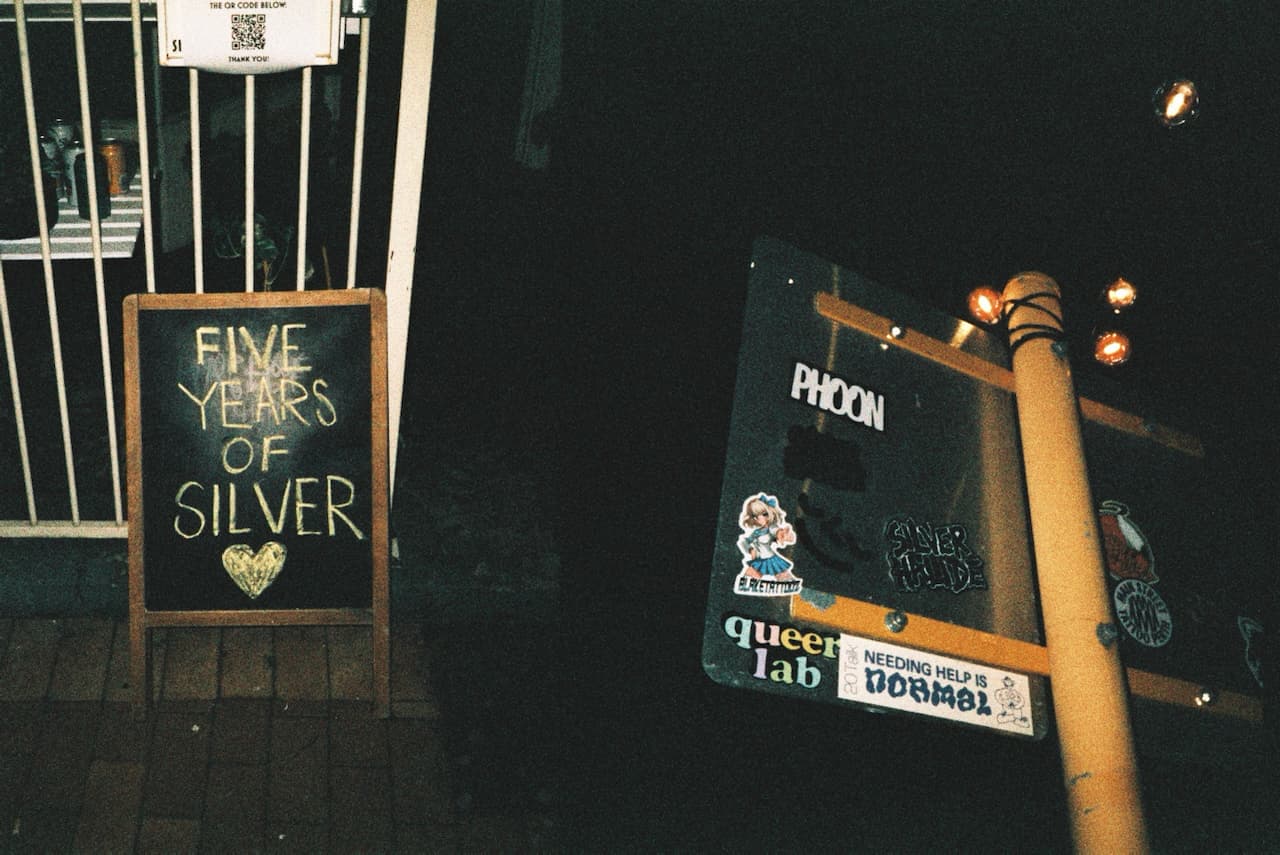 THE QR CODE BELOW:
THANK YOU!
FIVE
YEARS
OF
SILVER
PHOON
SILVER
HALIDE
BLAKETATTOOZ
queer
lab
20Talk
NEEDING HELP IS
NORMAL
MAIN STREET